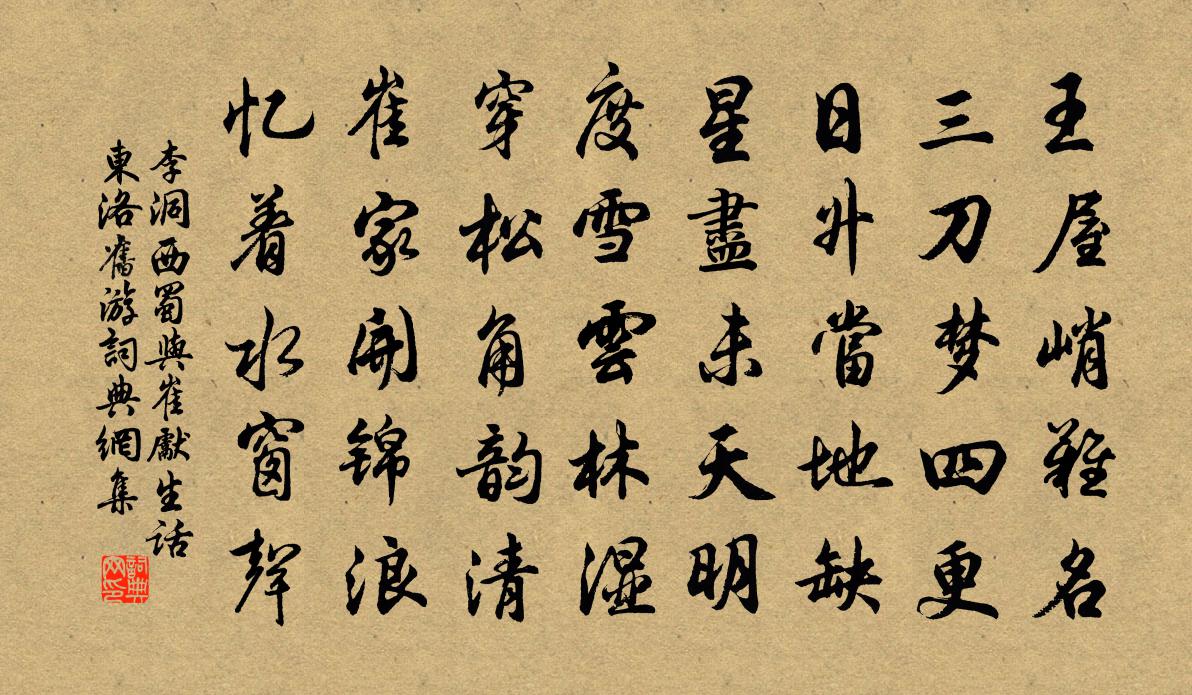 王屋峭難名
三刀梦四更
日升當地缺
星盡未天明
度雪雲林湿
穿松角韵清
崔家開锦浪
忆着水窗聲
李洞西蜀與崔獻生話
東洛舊游詞典網集
詞典
网印